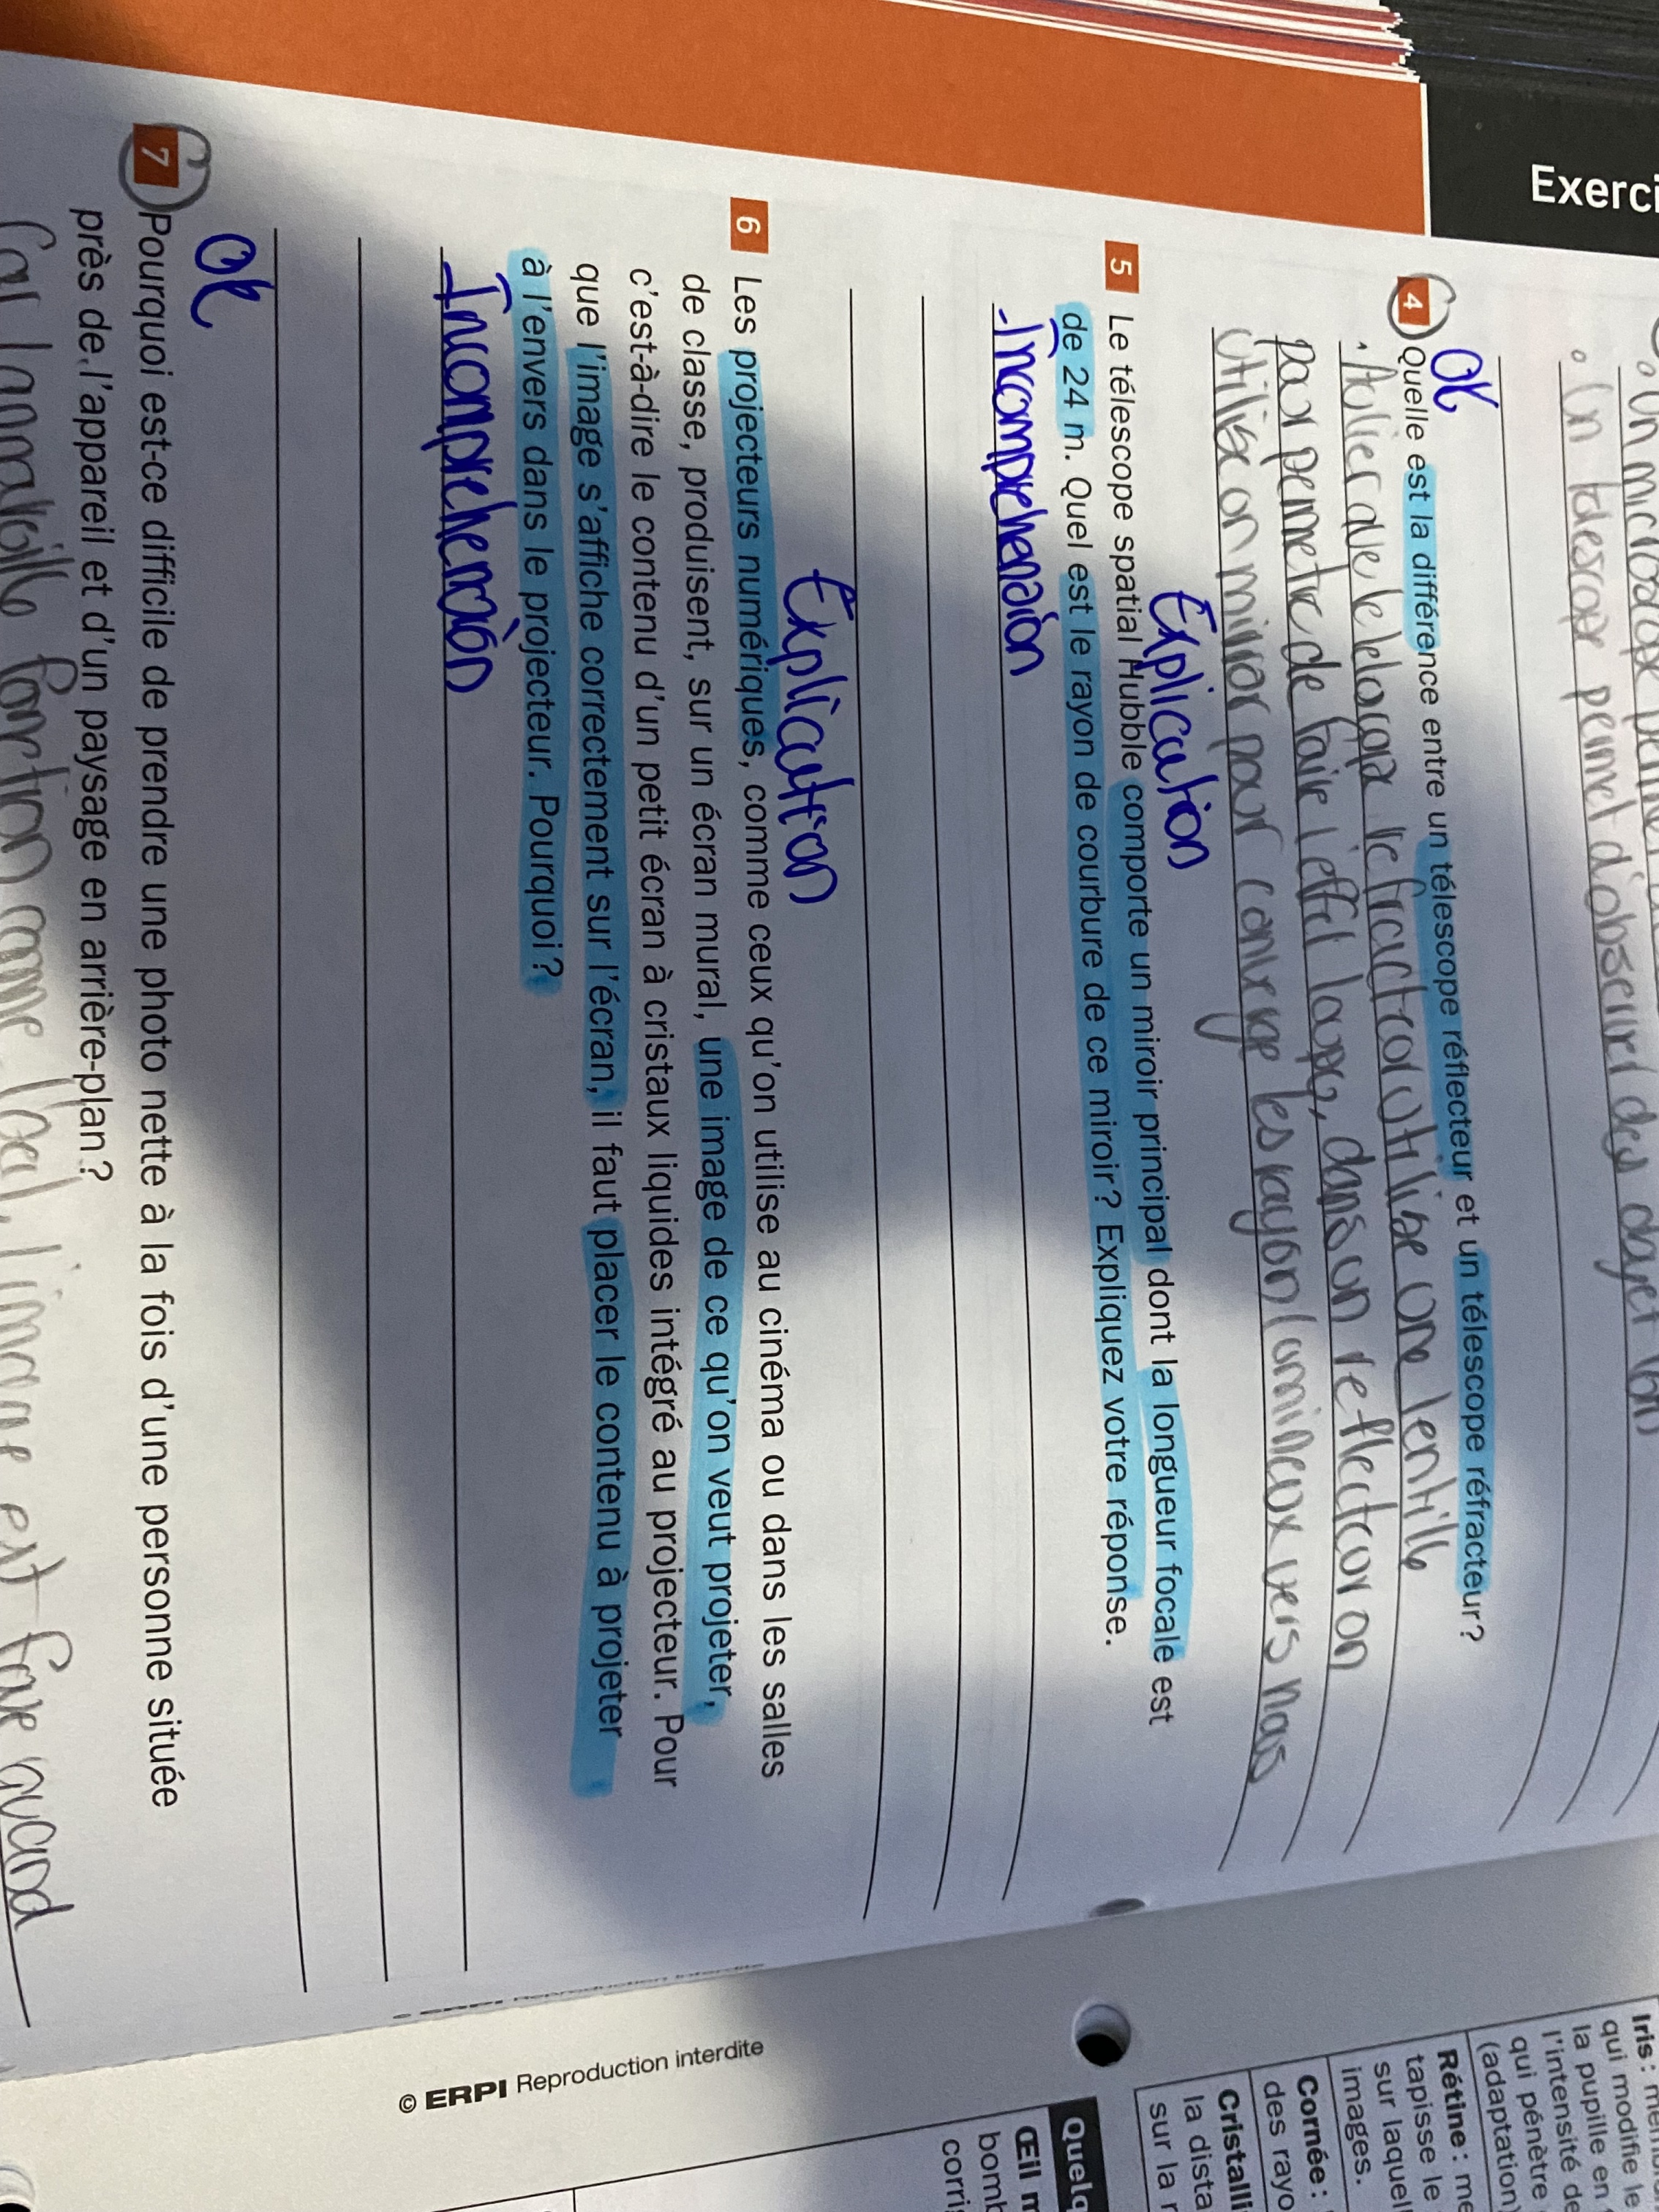 Exerci
° Un microscope
° Un telescope permet d'observer des objet loin
OK
4 Quelle est la différence entre un télescope réflecteur et un télescope réfracteur?
utilise une lentille
pour permetre de faire l'effet loupe, dans un reflecteur on
utilise un miroir pour converge les rayon lumineux vers nous
Explication
5 Le télescope spatial Hubble comporte un miroir principal dont la longueur focale est
de 24 m. Quel est le rayon de courbure de ce miroir? Expliquez votre réponse.
- Incomprehension
Explication
6 Les projecteurs numériques, comme ceux qu'on utilise au cinéma ou dans les salles
de classe, produisent, sur un écran mural, une image de ce qu'on veut projeter,
c'est-à-dire le contenu d'un petit écran à cristaux liquides intégré au projecteur. Pour
que l'image s'affiche correctement sur l'écran, il faut placer le contenu à projeter
à l'envers dans le projecteur. Pourquoi?
- Incomprehension
OK
7 Pourquoi est-ce difficile de prendre une photo nette à la fois d'une personne située
près de l'appareil et d'un paysage en arrière-plan?
Car l'appareille fonction comme l'oeil, l'image est faire quand
© ERPI Reproduction interdite
Iris :
qui modifie le
la pupille en
l'intensité de
qui pénètre
(adaptation
Rétine : me
tapisse le
sur laquel
images.
Cornée :
des rayo
Cristalli
la dista
sur la r
Quelq
Œil m
bomb
corri